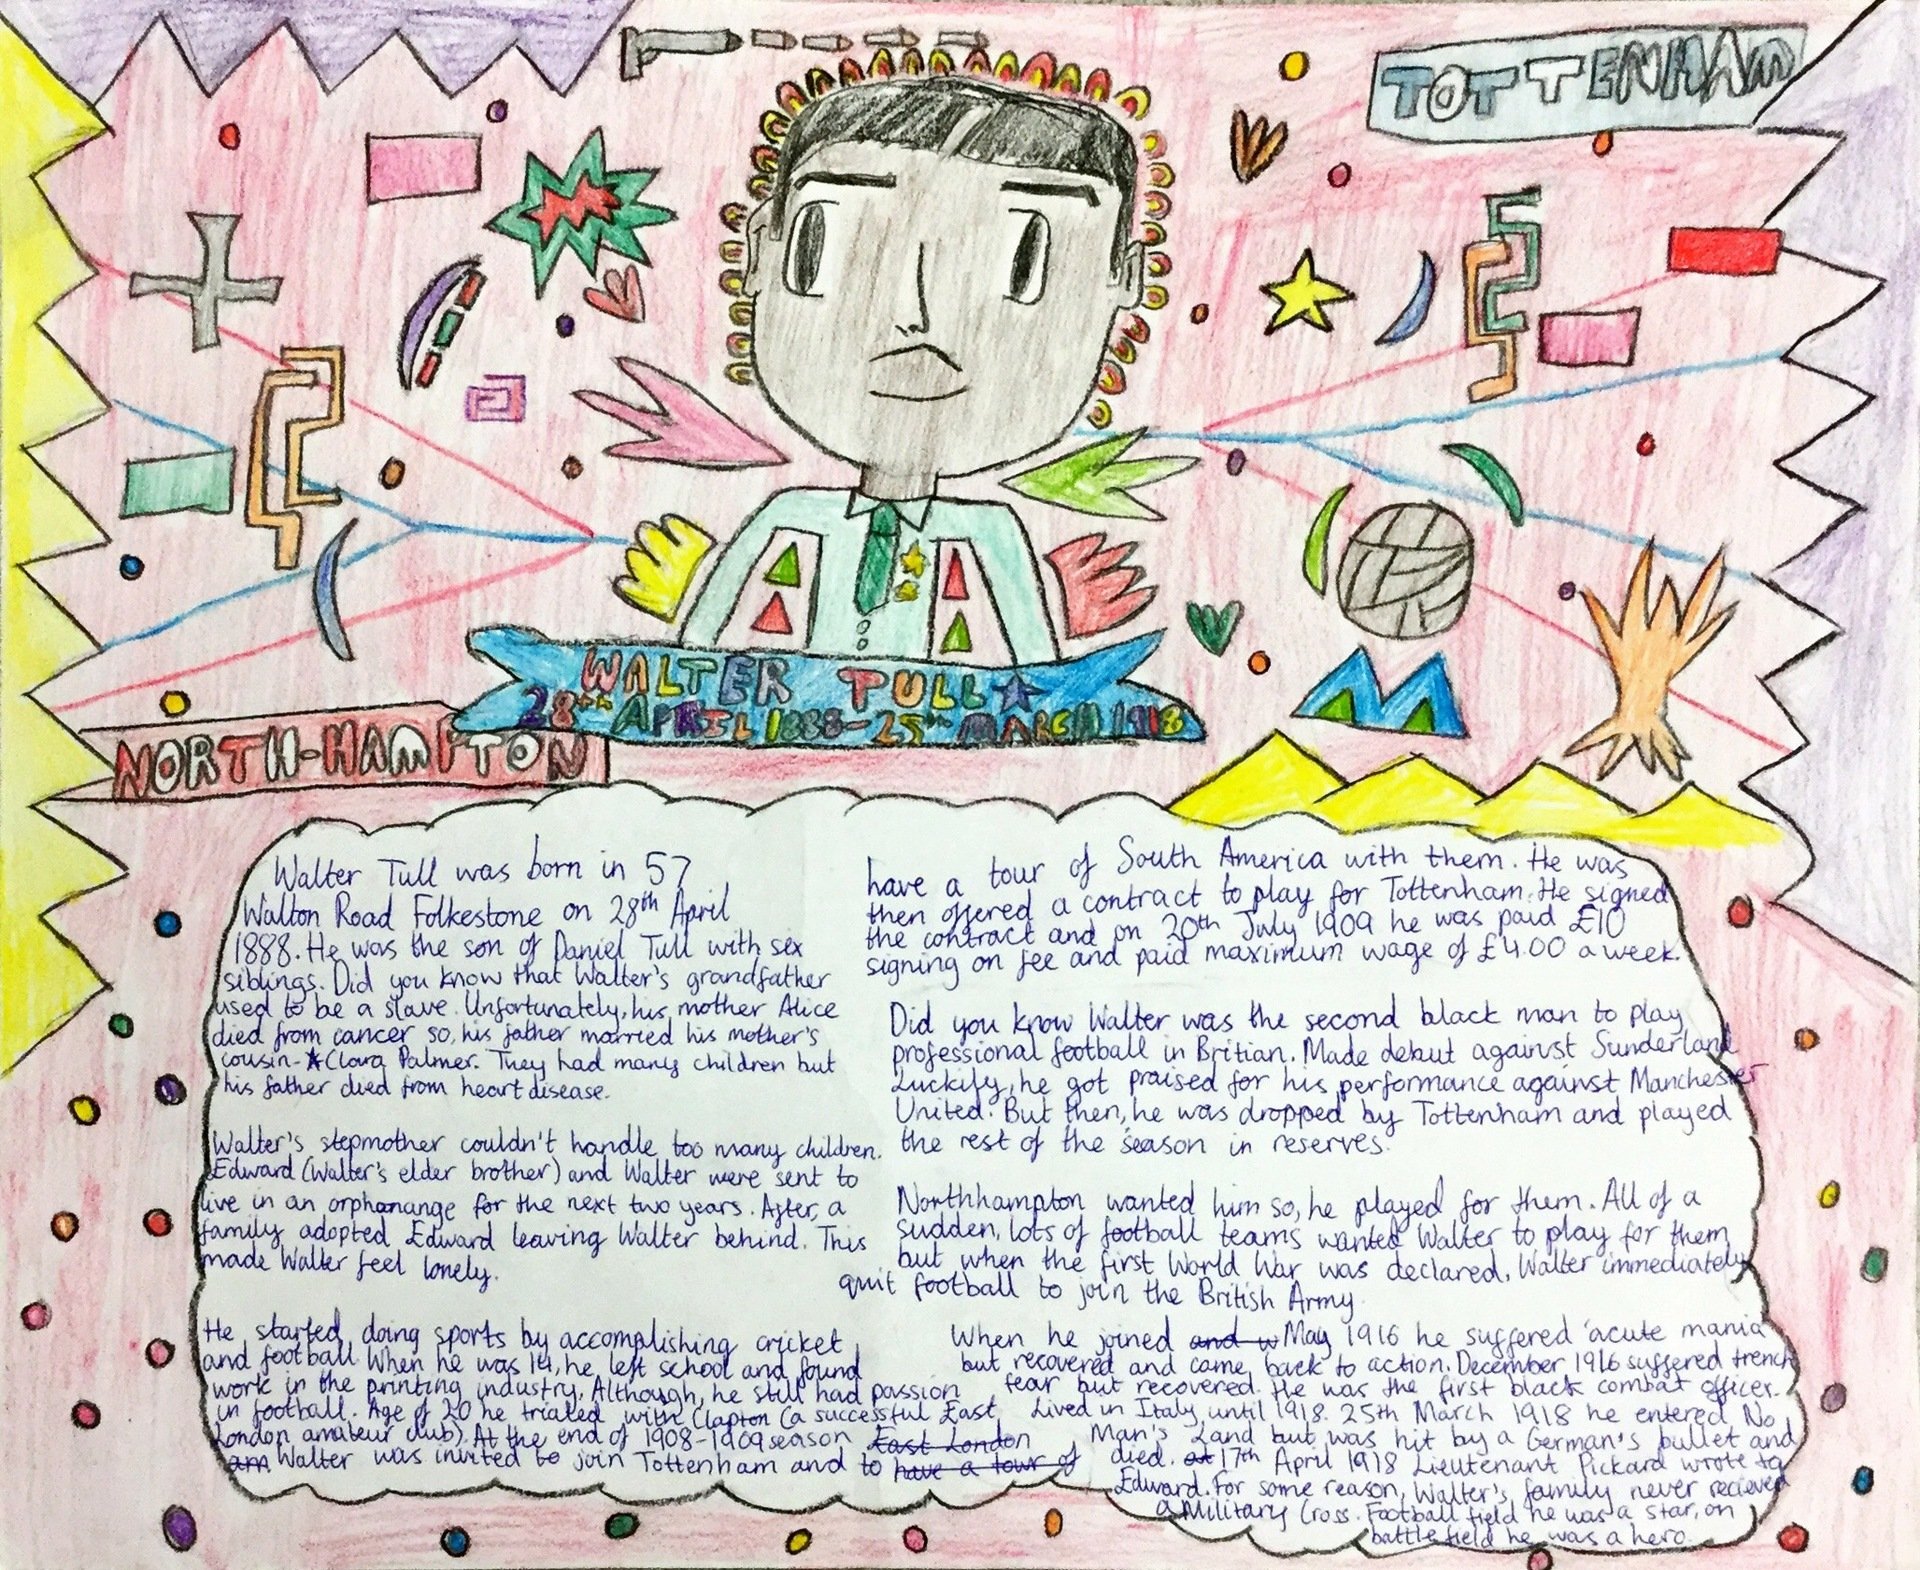 TOTTENHAM
WALTER TULL
28TH APRIL 1888-25TH MARCH 1918
NORTH-HAMPTON
Walter Tull was born in 57
Walton Road Folkestone on 28th April
1888. He was the son of Daniel Tull with sex
siblings. Did you know that Walter's grandfather
used to be a slave. Unfortunately, his, mother Alice
died from cancer so, his father married his mother's
cousin-Clara Palmer. They had many children but
his father died from heart disease.
Walter's stepmother couldn't handle too many children.
Edward (Walter's elder brother) and Walter were sent to
live in an orphanange for the next two years. After, a
family adopted Edward leaving Walter behind. This
made Walter feel lonely.
He started doing sports by accomplishing cricket
and football. When he was 14, he left school and found
work in the printing industry. Although, he still had passion
in football. Age of 20 he trialed with Clapton (a successful East
London amateur club). At the end of 1908-1909 season East London
am Walter was invited to join Tottenham and to have a tour of
have a tour of South America with them. He was
then offered a contract to play for Tottenham. He signed
the contract and on 20th July 1909 he was paid £10
signing on fee and paid maximum wage of £4.00 a week.
Did you know Walter was the second black man to play
professional football in Britian. Made debut against Sunderland
Luckily, he got praised for his performance against Manchester
United. But then, he was dropped by Tottenham and played
the rest of the season in reserves.
Northhampton wanted him so, he played for them. All of a
sudden, lots of football teams wanted Walter to play for them
but when the first World War was declared, Walter immediately
quit football to join the British Army.
When he joined and w May 1916 he suffered 'acute mania'
but recovered and came back to action. December 1916 suffered trench
fear but recovered. He was the first black combat officer.
Lived in Italy until 1918. 25th March 1918 he entered No
Man's Land but was hit by a German's bullet and
died. at 17th April 1918 Lieutenant Pickard wrote to
Edward. For some reason, Walter's family never recieved
a Military Cross. Football field he was a star, on
battle field he was a hero.